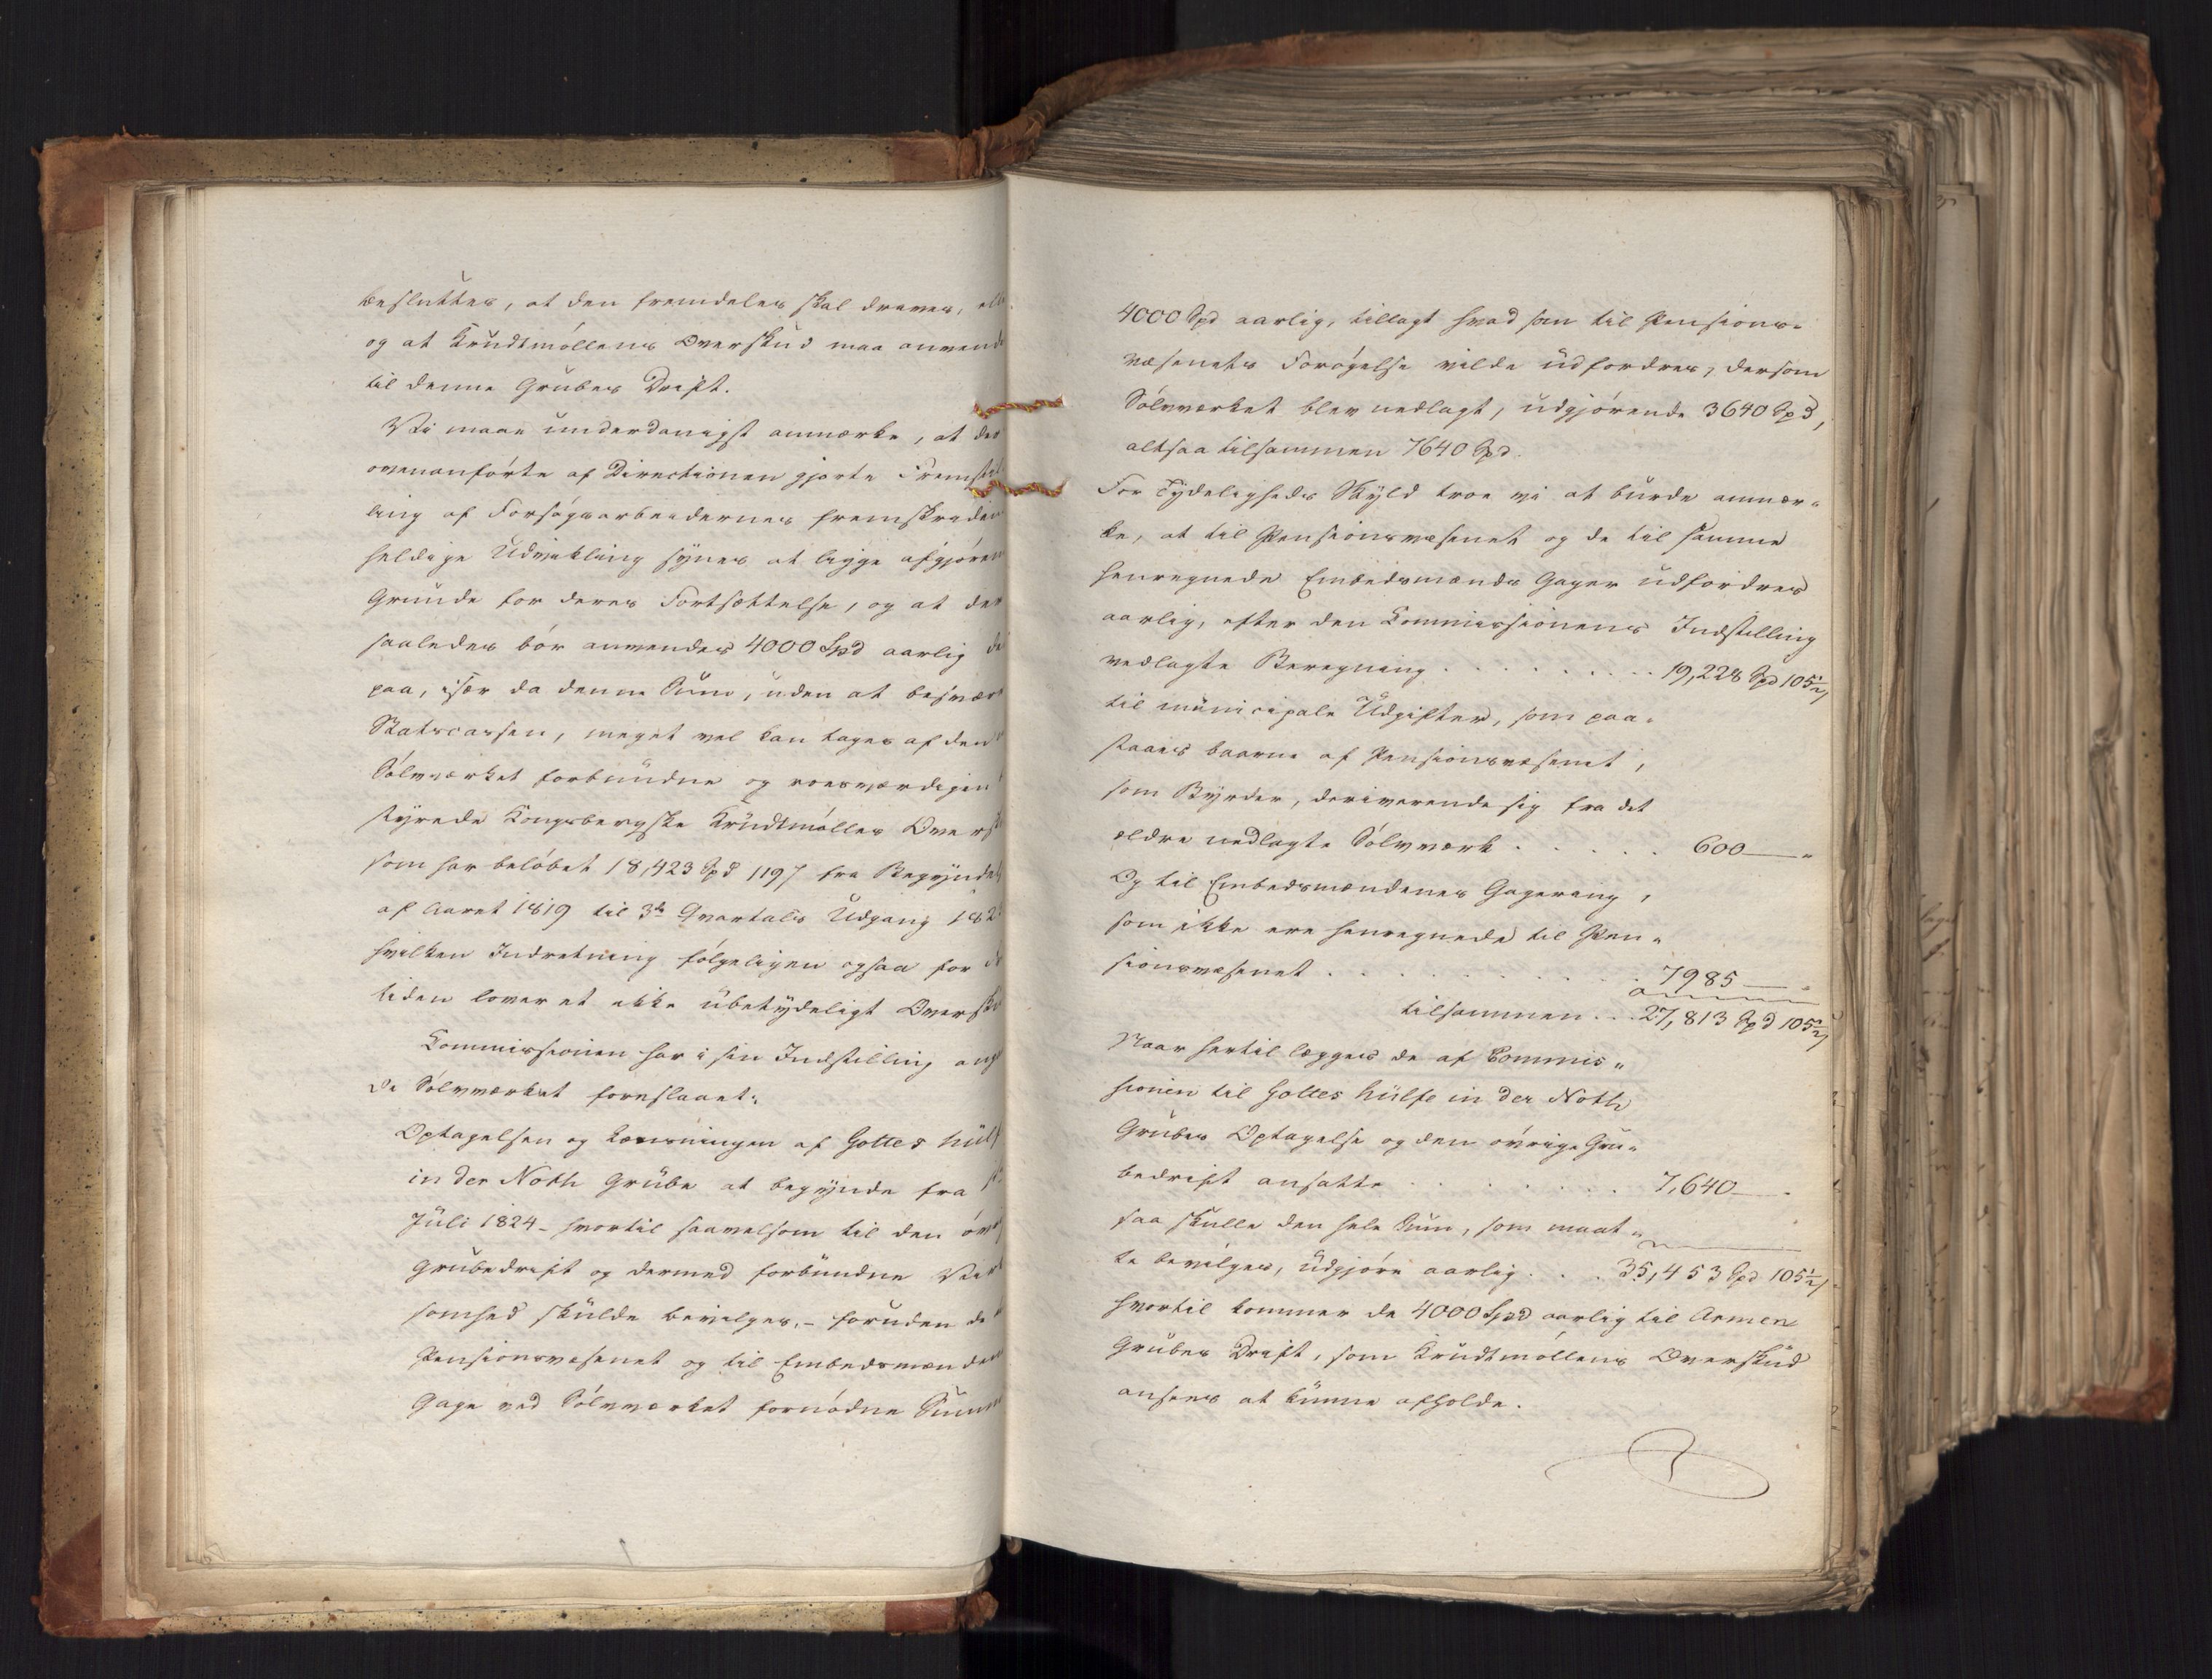 besluttes, at den fremdeles skal drives,
og at Krudtmøllens Overskud maa anvend
til denne Grubes Drift.
Vi maae underdanigst anmærke, at der
ovenanførte af Directionen gjorte Fremstil
ling af Forsøgsarbeidernes fremskriden
heldige Udvikling synes at ligge afgjøren
Grunde for deres Fortsættelse, og at der
saaledes bør anvendes 4000 Spd aarlig de
paa, især da denne Sum, uden at besvær
Statscassen, meget vel kan tages af den
Sølvværket forbundne og roesværdigen
styrede Kongsbergske Krudtmølles Oversk
som har beløbet 18,423 Spd 119 ß fra Begyndel
af Aaret 1819 til 3die Qvartals Udgang 182
hvilken Indretning følgeligen ogsaa for
tiden lover et ikke ubetydeligt Oversk
Kommissionen har i sin Indstilling ang
de Sølvværket foreslaaet:
Optagelsen og Lænsningen af Gottes hülf
in der Noth Grube at begynde fra
Juli 1824 - hvortil saavelsom til den øvr
Grubedrift og dermed forbundne Virk
somhed skulde bevilges, - foruden de
Pensionsvæsenet og til Embedsmænden
Gage ved Sølvværket fornødne Summ
4000 Spd aarlig, tillagt hvad som til Pensions-
væsenets Forøgelse vilde udfordres, dersom
Sølvværket blev nedlagt, udgjørende 3640 Spd,
altsaa tilsammen 7640 Spd.
For Tydeligheds Skyld troe vi at burde anmær-
ke, at til Pensionsvæsenet og de til samme
henregnede Embedsmænds Gager udfordres
aarlig, efter den Kommissionens Indstilling
vedlagte Beregning . . . . . . . . 19,228 Spd 105½ ß
til municipale Udgifter, som paa-
staaes baarne af Pensionsvæsenet,
som Byrder, deriverende sig fra det
ældre nedlagte Sølvværk . . . . . 600 — "
Og til Embedsmændenes Gagering,
som ikke ere henregnede til Pen-
sionsvæsenet . . . . . . . . . 7985 — "
tilsammen . . . 27,813 Spd 105½ ß
Naar hertil lægges de af Commis-
sionen til Gottes hülfe in der Noth
Grubes Optagelse og den øvrige Gru-
bedrift ansatte . . . . . . . 7,640 — "
saa skulle den hele Sum, som maat-
te bevilges, udgjøre aarlig . . . 35,453 Spd 105½ ß
hvortil kommer de 4000 Spd aarlig til Armen
Grubes Drift, som Krudtmøllens Overskud
ansees at kunne afholde.